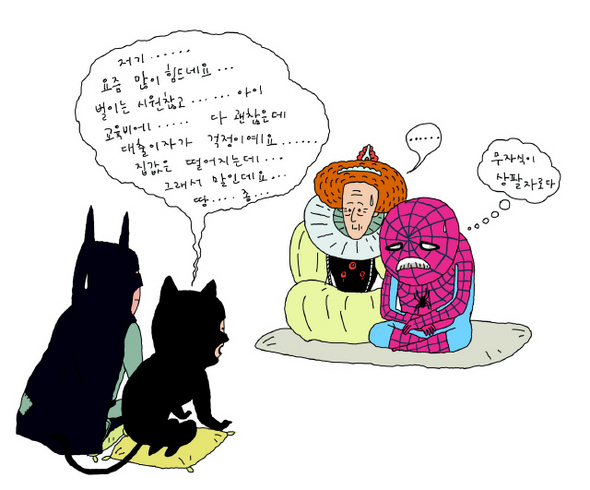 저기......
요즘 많이 힘드네요...
벌이는 시원찮고...... 아이
교육비에..... 다 괜찮은데
대출이자가 걱정이예요......
집값은 떨어지는데...
그래서 말인데요...
땅.... 좀...
......
무자식이
상팔자로다